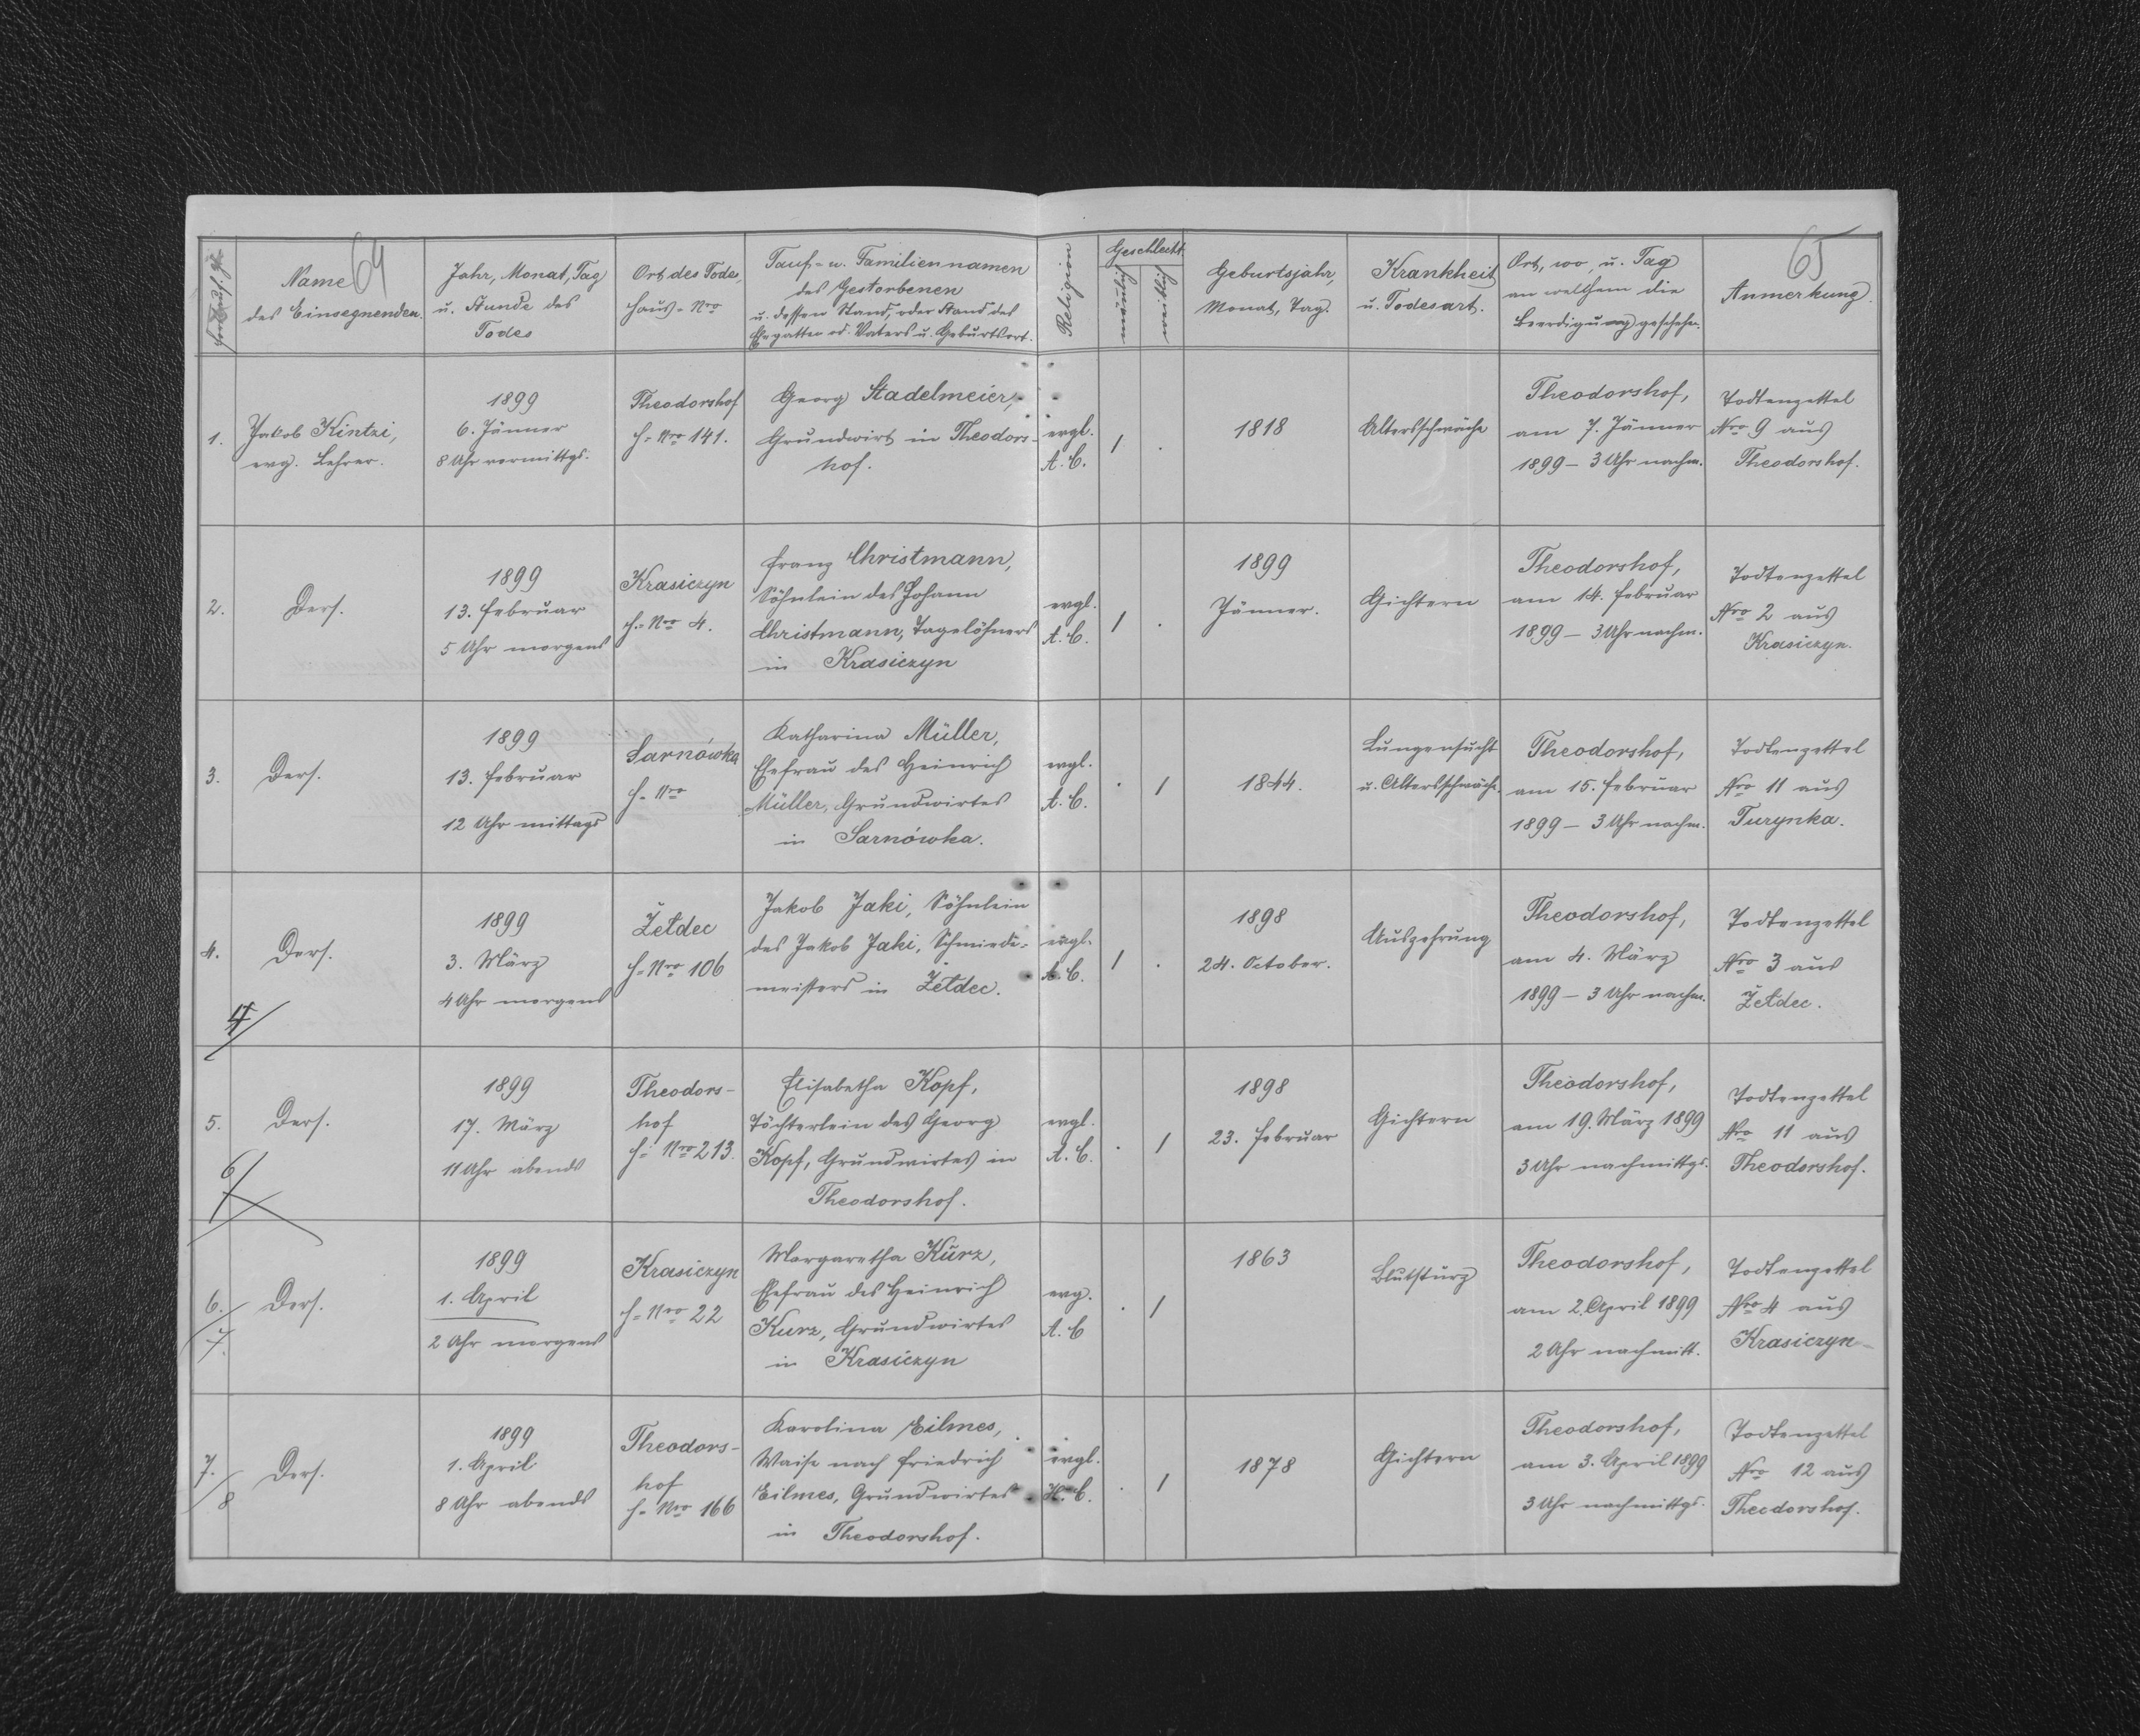 64
65
Name
des Einsegnenden.
Jahr, Monat, Tag
u. Stunde des
Todes
Ort des Todes,
Haus-Nro
Tauf- u. Familiennamen
des Gestorbenen
u. dessen Stand, oder Stand des
Ehegatten od. Vaters u. Geburtsort.
Religion
Geschlecht
männlich
weiblich
Geburtsjahr,
Monat, Tag.
Krankheit
u. Todesart.
Ort, wo, u. Tag
an welchem die
Beerdigung geschehen.
Anmerkung.
1.
Jakob Kintzi,
evg. Lehrer.
1899
6. Jänner
8 Uhr vormittgs.
Theodorshof
H-Nro 141.
Georg Stadelmeier,
Grundwirt in Theodors-
hof.
evgl.
A. C.
1
.
1818
Altersschwäche
Theodorshof,
am 7. Jänner
1899 – 3 Uhr nachm.
Todtenzettel
Nro 9 aus
Theodorshof.
2.
Ders.
1899
13. Februar
5 Uhr morgens
Krasiczyn
H-Nro 4.
Franz Christmann,
Söhnlein des Johann
Christmann, Tagelöhners
in Krasiczyn
evgl.
A. C.
1
.
1899
Jänner.
Gichtern
Theodorshof,
am 14. Februar
1899 – 3 Uhr nachm.
Todtenzettel
Nro 2 aus
Krasiczyn.
3.
Ders.
1899
13. Februar
12 Uhr mittags
Sarnówka
H-Nro
Katharina Müller,
Ehefrau des Heinrich
Müller, Grundwirtes
in Sarnówka.
evgl.
A. C.
.
1
1844.
Lungensucht
u. Altersschwäche.
Theodorshof,
am 15. Februar
1899 – 3 Uhr nachm.
Todtenzettel
Nro 11 aus
Turynka.
4.
Ders.
1899
3. März
4 Uhr morgens
Żełdec
H-Nro 106
Jakob Jaki, Söhnlein
des Jakob Jaki, Schmiede-
meisters in Żełdec.
evgl.
A. C.
1
.
1898
24. October.
Auszehrung
Theodorshof,
am 4. März
1899 – 3 Uhr nachm.
Todtenzettel
Nro 3 aus
Żełdec.
5.
6
Ders.
1899
17. März
11 Uhr abends
Theodors-
hof
H-Nro 213.
Elisabetha Kopf,
Töchterlein des Georg
Kopf, Grundwirtes in
Theodorshof.
evgl.
A. C.
.
1
1898
23. Februar
Gichtern
Theodorshof,
am 19. März 1899
3 Uhr nachmittgs.
Todtenzettel
Nro 11 aus
Theodorshof.
6.
7.
Ders.
1899
1. April
2 Uhr morgens
Krasiczyn
H-Nro 22
Margaretha Kurz,
Ehefrau des Heinrich
Kurz, Grundwirtes
in Krasiczyn
evg.
A. C
.
1
1863
Blutsturz
Theodorshof,
am 2. April 1899
2 Uhr nachmitt.
Todtenzettel
Nro 4 aus
Krasiczyn
7.
8
Ders.
1899
1. April
8 Uhr abends
Theodors-
hof
H-Nro 166
Karolina Eilmes,
Waise nach Friedrich
Eilmes, Grundwirtes
in Theodorshof.
evgl.
H. C.
.
1
1878
Gichtern
Theodorshof,
am 3. April 1899
3 Uhr nachmittgs.
Todtenzettel
Nro 12 aus
Theodorshof.